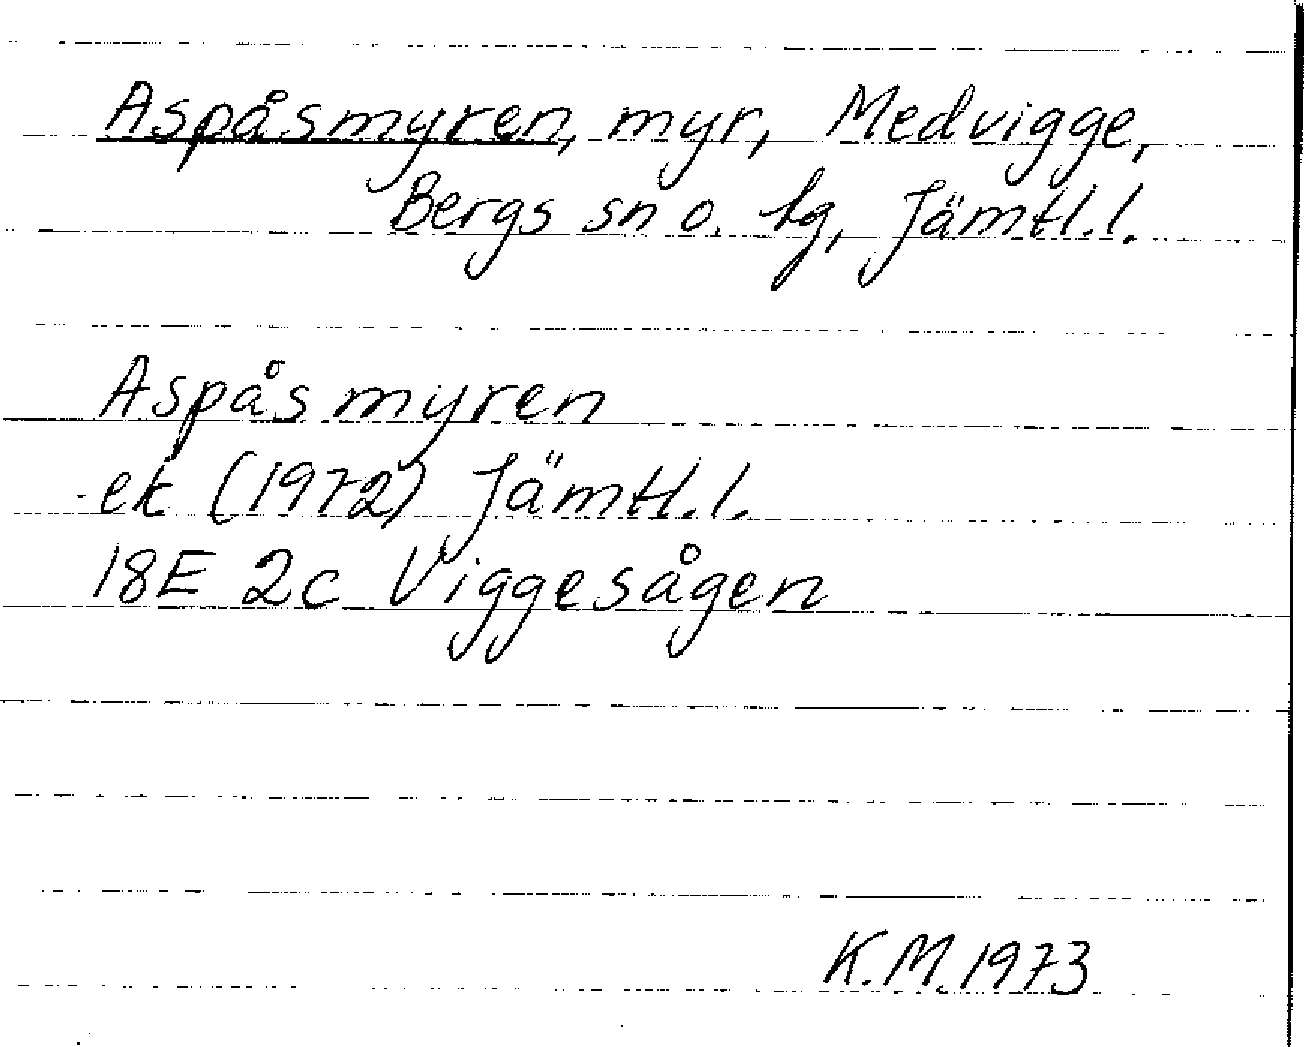 Aspåsmyren, myr, Medvigge,
Bergs sn o. tg, Jämtl.l.
Aspåsmyren
ek (1972) Jämtl.l.
18E 2c Viggesågen
K.M.1973